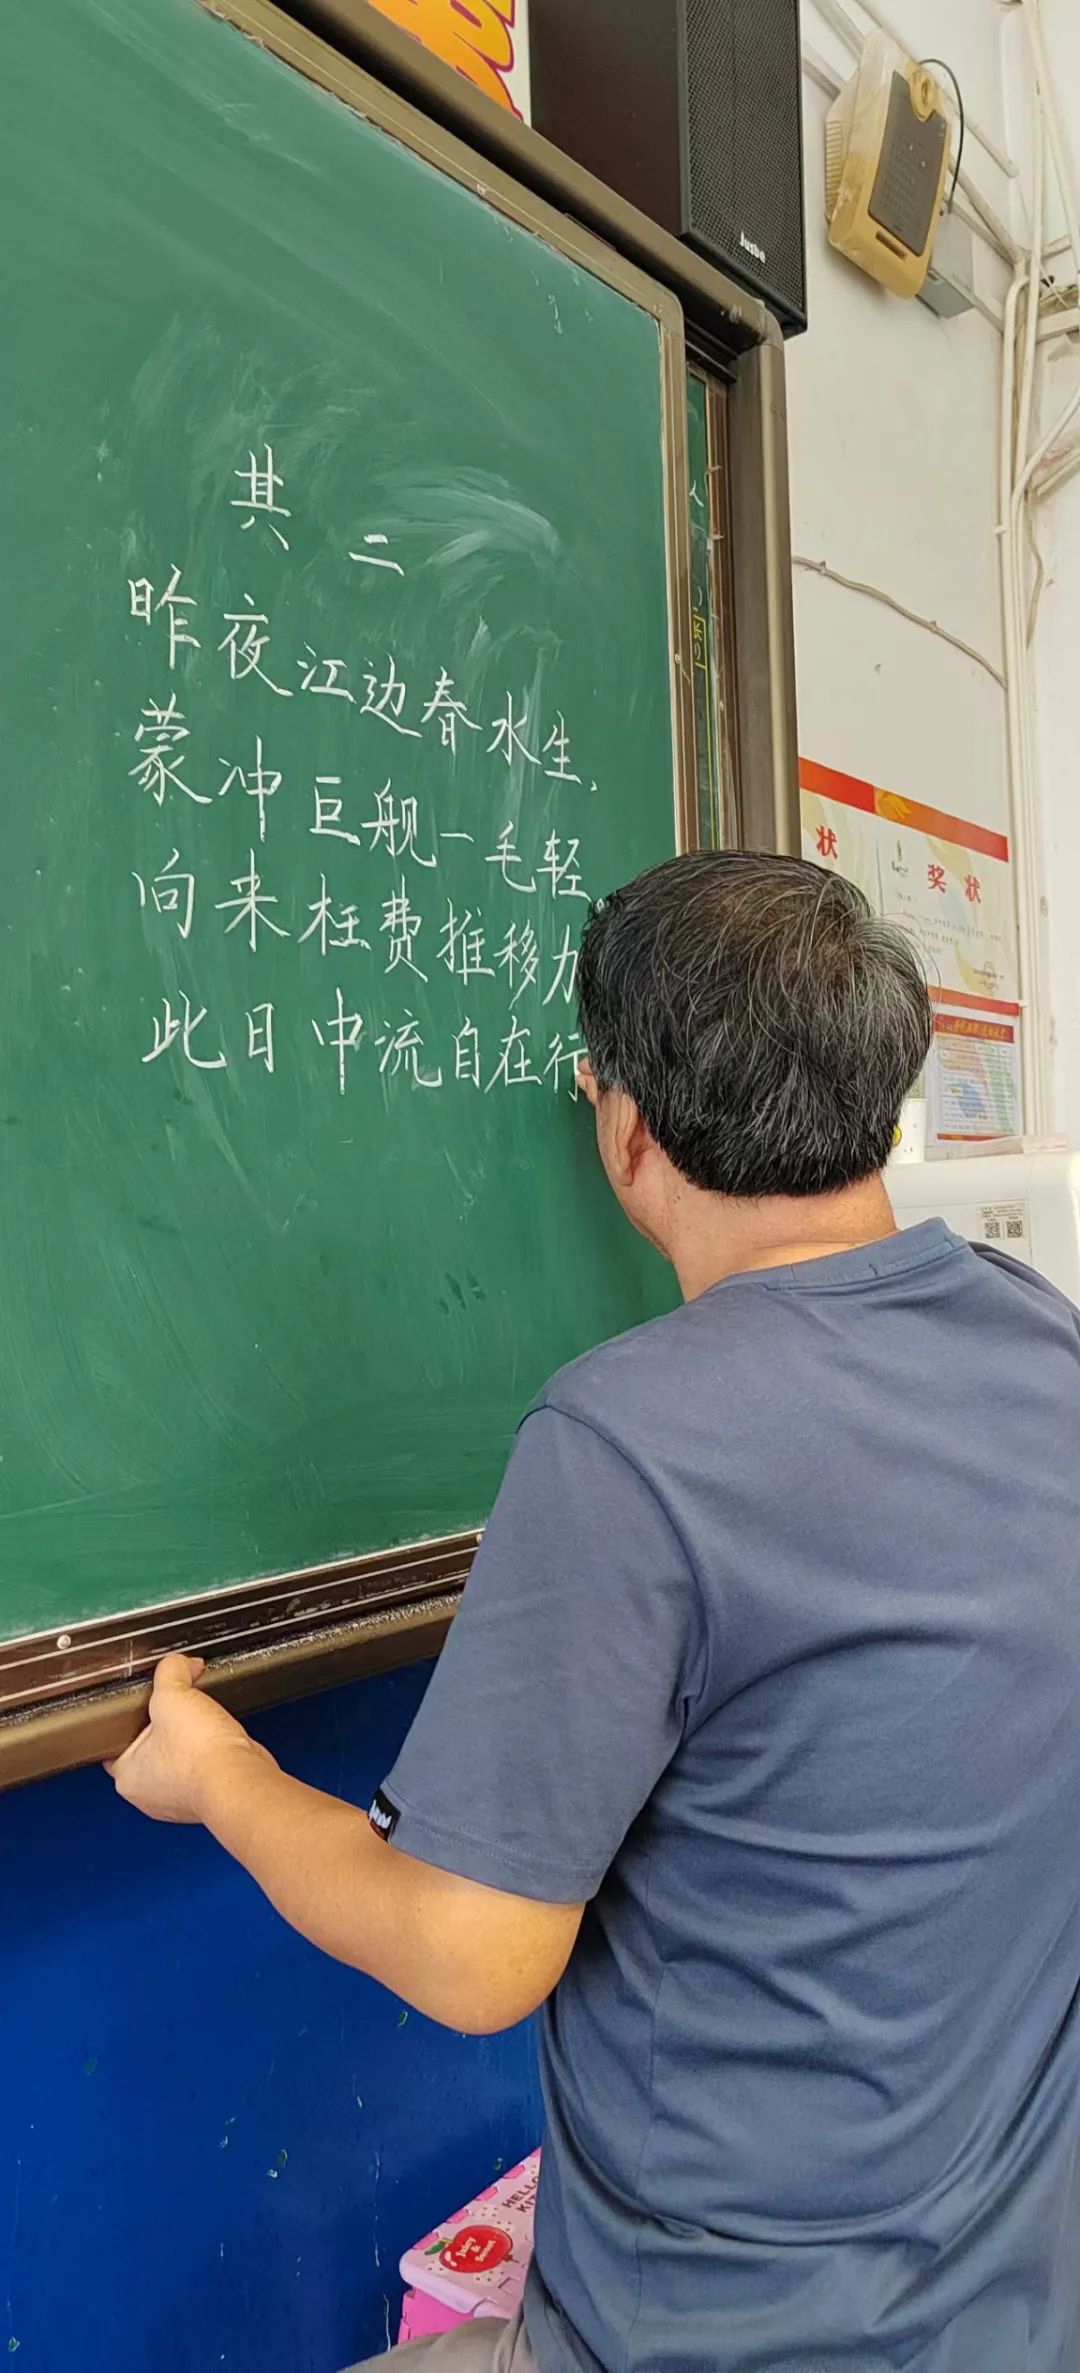 其二
昨夜江边春水生，
蒙冲巨舰一毛轻。
向来枉费推移力
此日中流自在行
Jusbe
状
奖状
HELLO
KIT